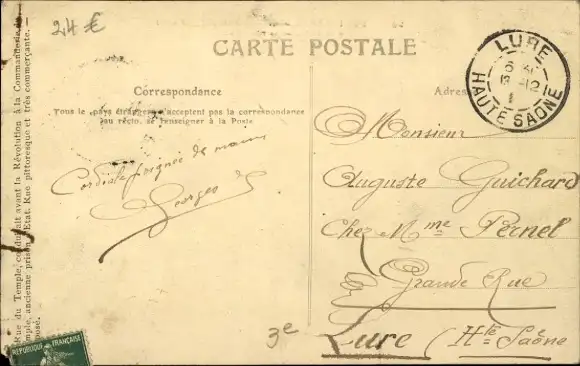 2,4 €
CARTE POSTALE
Correspondance
Tous les pays étrangers n'acceptent pas la correspondance
au recto, se renseigner à la Poste
Cordiale poignée de mains
Georges
Monsieur
Auguste Guichard
Chez Mme Pernel
Grande Rue
Lure (Hte Saône
3e
LURE
HAUTE SAONE
Rue du Temple, conduisait avant la Révolution à la Commanderie
Temple, ancienne prison d'Etat. Rue pittoresque et très commerçante.
REPUBLIQUE FRANÇAISE